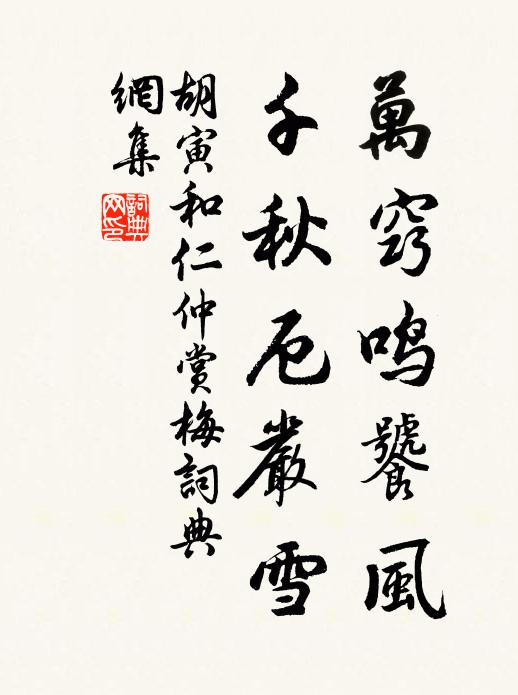 萬窍鸣饕風
千秋厄嚴雪
胡寅和仁仲赏梅詞典
網集
詞典网印